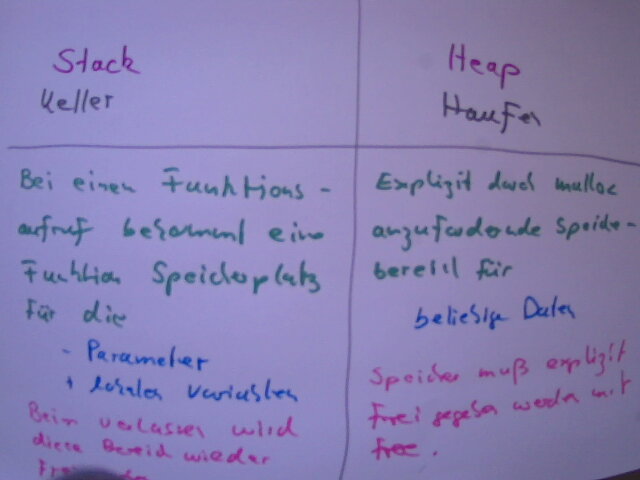 Stack
Keller
Bei einen Funktions-
aufruf bekommt eine
Funktion Speicherplatz
für die
- Parameter
+ lokalen Variablen
Beim verlassen wird
diese Bereich wieder
Heap
Haufen
Explizit durch malloc
anzufordernde Speicher-
bereich für
beliebige Daten
Speicher muß explizit
frei gegeben werden mit
free.